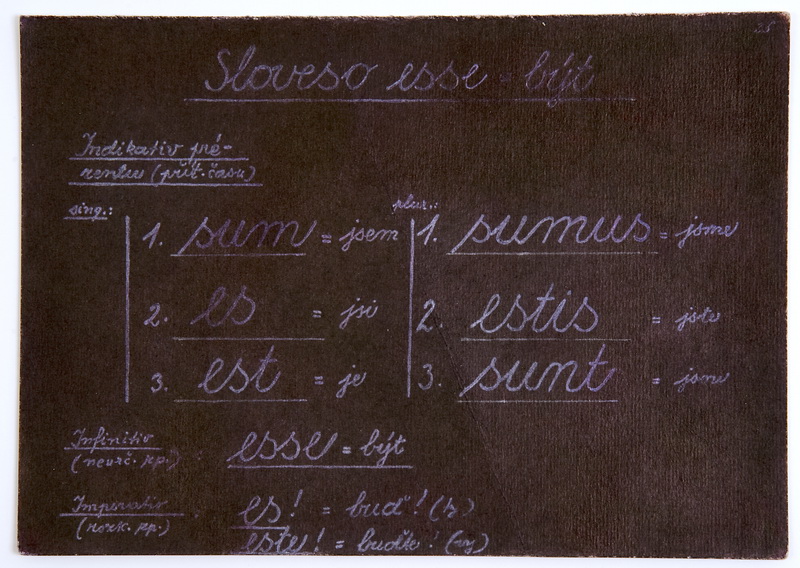 25
Sloveso esse = být
Indikativ pré-
zentu (přít. času)
sing.:
1. sum = jsem
2. es = jsi
3. est = je
plur.:
1. sumus = jsme
2. estis = jste
3. sunt = jsou
Infinitiv
(neurč. zp.) :
esse = být
Imperativ
(rozk. zp.) :
es! = buď!
este! = buďte!